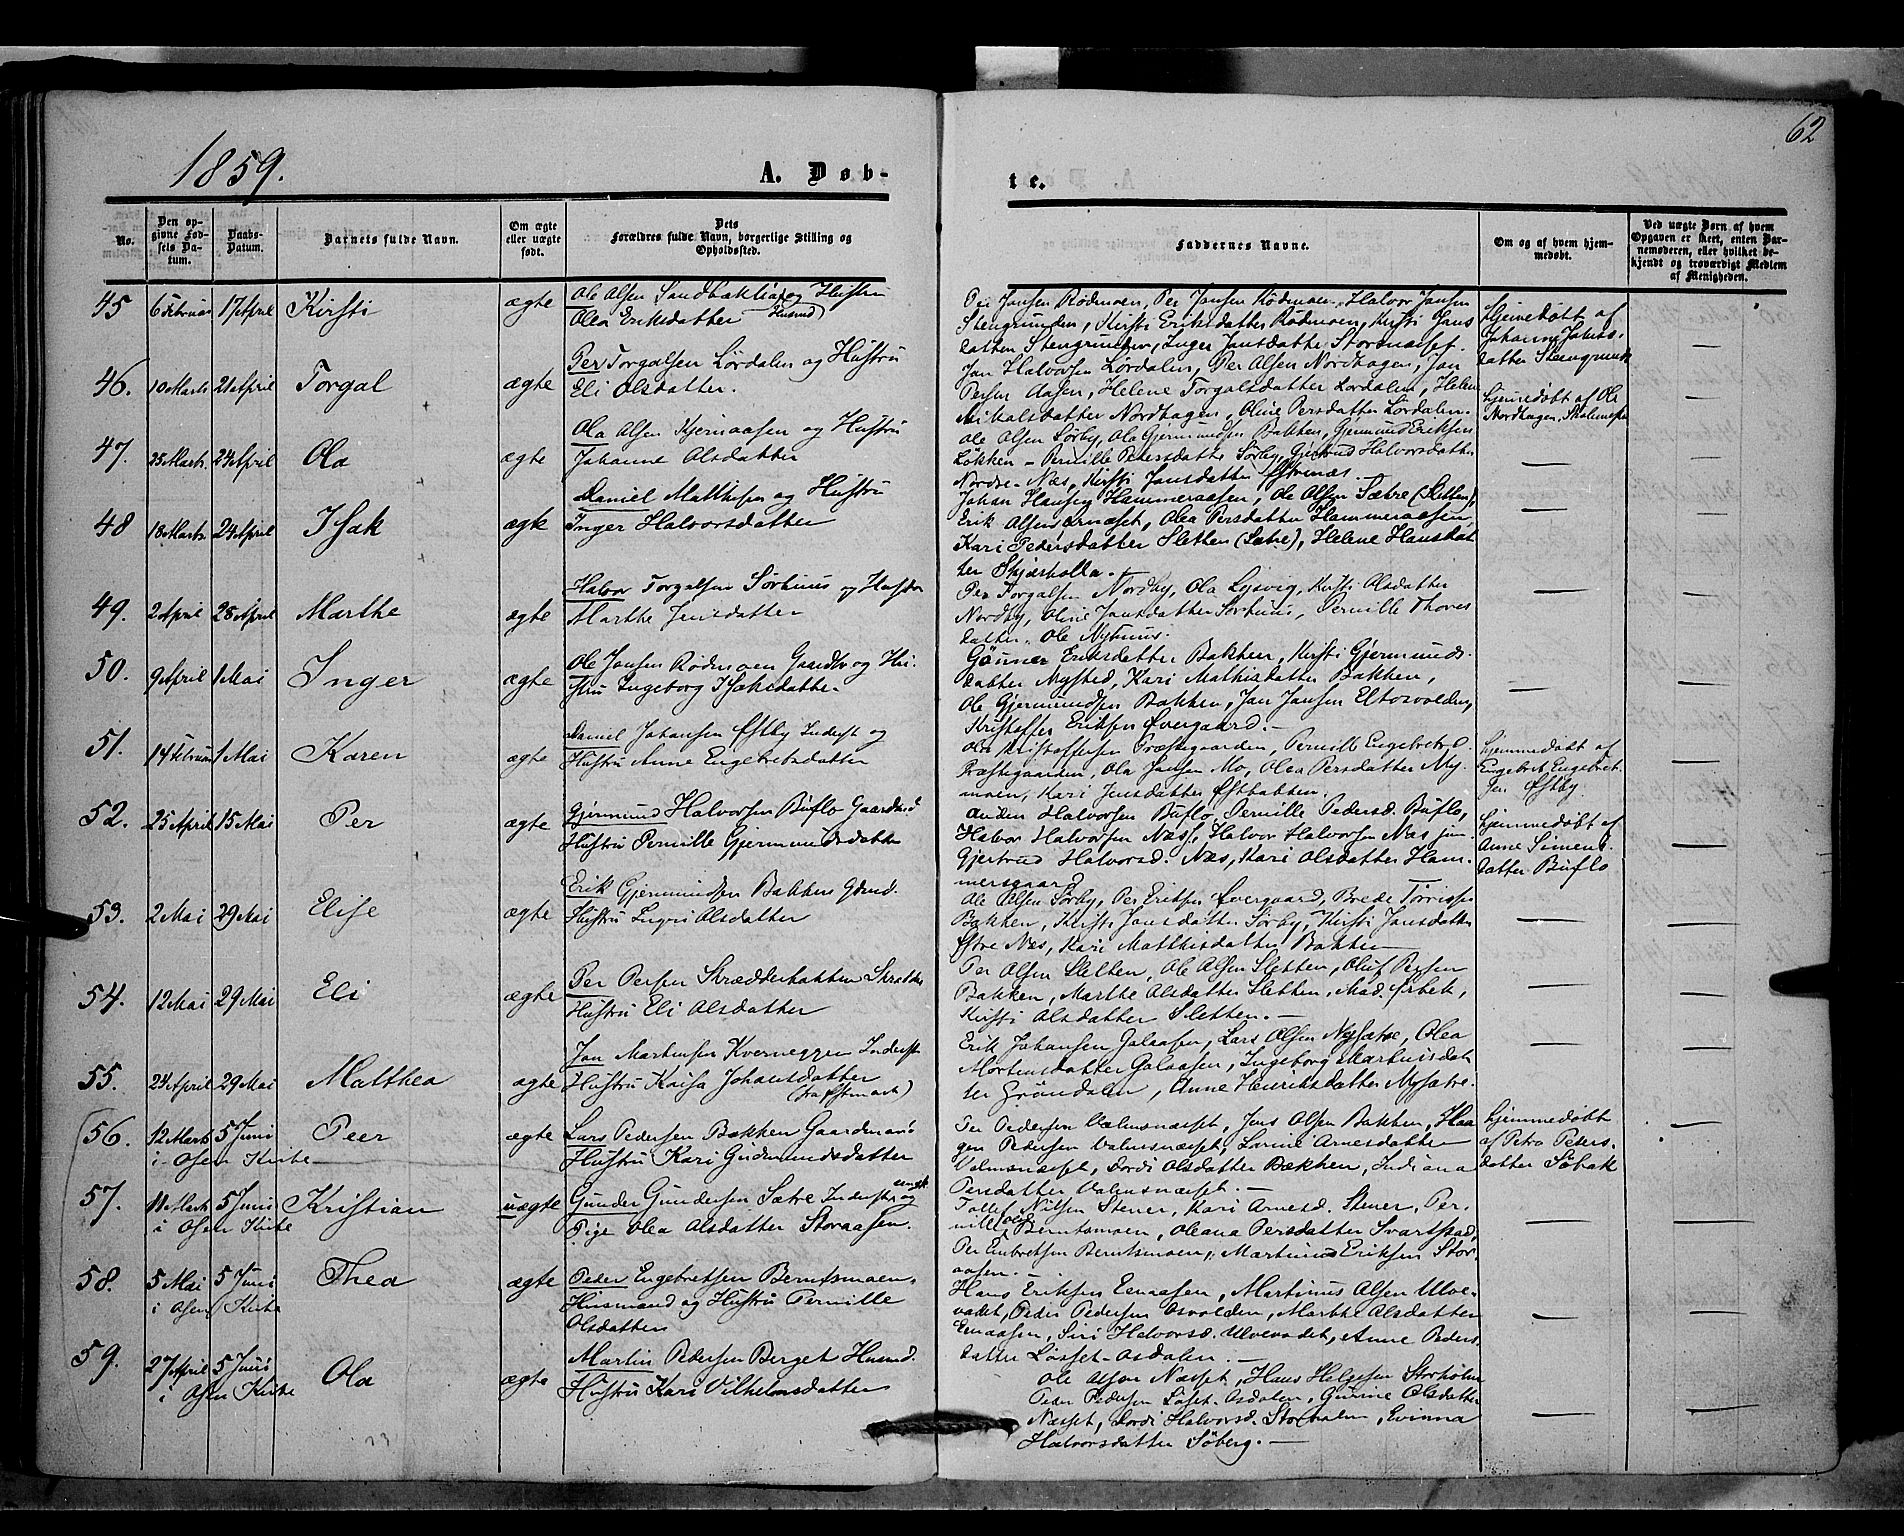 1859.
A. Døb-
te.
62
No.
Den opgivne Fødsels Datum.
Daabs-Datum.
Barnets fulde Navn.
Om ægte eller uægte født.
Dets Forældres fulde Navn, borgerlige Stilling og Opholdssted.
Faddernes Navne.
Om og af hvem hjemmedøbt.
Ved uægte Børn af hvem Opgaven er skeet, enten Barnemoderen, eller hvilket bekjendt og troværdigt Medlem af Menigheden.
45 6 Februar 17 April Kirsti ægte Ole Olsen og Hustru
Olea Eriksdatter
Per Jansen Rödmoen, Per Jansen Rödmoen, Halvor Jansen
Stengrunden, Kirsti Eriksdatter Rödmoen, Kirsti Jans
datter Stengrunden, Inger Jansdatter Stornæsset.
Hjemedøbt af
Johanne Jakobs
datter
46. 10 Marts 21 April Torgal ægte Per Torgalsen Lördalen og Hustru
Eli Olsdatter.
Jan Halvorsen Lördalen, Per Olsen Nordhagen, Jan
Persen Aasen, Helene Torgalsdatter Lördalen, Helene
Mikalsdatter Nordhagen, Oline Persdatter Lördalen.
Hjemedøbt af Ole
Nordhagen
47. 25 Marts 24 April Ola ægte Ola Olsen Kjernaasen og Hustru
Johanne Olsdatter
Ole Olsen Sörby, Ola Gjermundsen Bakken, Gjermund Eriksen
Lökken - Pernille Pedersdatter Sörby, Gjertrud Halvorsdatter
Nordre-Næs, Kirsti Jansdatter
48 18 Marts 24 April Isak ægte Daniel Matthisen og Hustru
Inger Halvorsdatter
Johan Hansen Hammeraasen, Ole Olsen Sætre (Sletten),
Erik Olsen, Olea Persdatter Hammeraasen,
Kari Pedersdatter Sletten (Sætre), Helene Hansdat
ter Skjærholla.
49. 2 April 28 April Marthe ægte Halvor Torgalsen Sörhuus og Hustru
Marthe Jensdatter
Per Torgalsen Nordby, Ola Lysvig, Kirsti Olsdatter
Nordby, Oline Jansdatter Sörhuus, Pernille Thores
datter. Ole Nyhuus.
50. 9 April 1 Mai Inger ægte Ole Jansen Rödmoen Gaardbr og Hu-
stru Ingeborg Isaksdatter
Gunner Eriksdatter Bakken, Kirsti Gjermunds-
datter Nysted, Kari Mathisdatter Bakken,
Ole Gjermundsen Bakken, Jan Jansen
Kristoffer Eriksen Övergaard.
51. 14 Februar 1 Mai Karen ægte Daniel Johansen Östby Inderst og
Hustru Anne Engebretsdatter
Ola Kristoffersen Præstegaarden, Pernille Engebretsd.
Præstegaarden, Ola Jansen Mo, Olea Persdatter My-
moen, Kari Jensdatter
Hjemmedøbt af
Engebret Engebret-
sen Östby.
52. 25 April 15 Mai Per ægte Gjermund Halvorsen Büflo Gaardmd
Hustru Pernille Gjermundsdatter
Anders Halvorsen Büflo, Pernille Pedersd. Büflo,
Halvor Halvorsen Næs, Halvor Halvorsen Næs jun.
Gjertrud Halvorsd. Næs, Kari Olsdatter Ham-
mersgaard
Hjemmedøbt af
Anne Simens
datter Büflo
53. 2 Mai 29 Mai Elise ægte Erik Gjermundsen Bakken
Hustru Olsdatter
Ole Olsen Sörby, Per Eriksen Övergaard, Brede
Bakken, Kirsti Jansdatter Sörby, Kirsti Jansdatter
Östre Næs, Kari Matthisdatter Bakken
54. 12 Mai 29 Mai Eli ægte Per Persen Skrædderbakken Skrædder
Hustru Eli Olsdatter
Per Olsen Sletten, Ole Olsen Sletten, Oluf Persen
Bakken, Marthe Olsdatter Sletten, Mad. Örbek,
Kirsti Olsdatter Sletten.
55. 24 April 29 Mai Matthea ægte Jan Martinsen Kverneggen Inderst
Hustru Kaisa Johansdatter
Erik Johansen Galaasen, Lars Olsen Nysætre, Olea
Mortensdatter Galaasen, Ingeborg Martinsdat
ter Gröndalen, Anne Henriksdatter Nysætre.
56. 12 Marts 5 Juni Peer ægte Lars Pedersen Bækken Gaardmand
i Osen Kirke Hustru Kari Gudmundsdatter
Per Pedersen Valmsnæsset, Jens Olsen Bækken, Haa
gen Pedersen Valmsnæsset, Lorine Arnesdatter
Valmsnæsset, Dordi Olsdatter Bækken, Indiana
Persdatter Valmsnæsset.
Hjemmedøbt
af Petra Peders-
datter Söbak
57. 11 Marts 5 Juni Kristian uægte Gunder Gundersen Sætre Inderst og
i Osen Kirke Pige Olea Olsdatter Storaasen.
Nilsen Stener, Kari Arnesd. Stener, Per-
nille Olsd. Berntsmoen, Oleana Persdatter Svartskad,
Per Embretsen Berntsmoen, Martinus Eriksen Stor
aasen.
58. 5 Mai 5 Juni Thea ægte Peder Engebretsen Berntsmoen,
i Osen Kirke Husmand og Hustru Pernille
Olsdatter
Hans Eriksen Enaasen, Martinus Olsen Ulve-
vadet, Peder Pedersen Osvolden, Marthe Olsdatter
Enaasen, Siri Halvorsd. Ulvevadet, Anne Peders
datter Lösset-Osdalen.
59. 27 April 5 Juni Ola ægte Martin Pedersen Berget Husmd.
i Osen Kirke Hustru Kari Vilhelmsdatter
Ole Olsen Næsset, Hans Helgesen Storholmen
Peder Pedersen Löset-Osdalen, Gurine Olsdatter
Næsset, Dordi Halvorsd. Storholm, Evinna
Halvorsdatter Söberg.